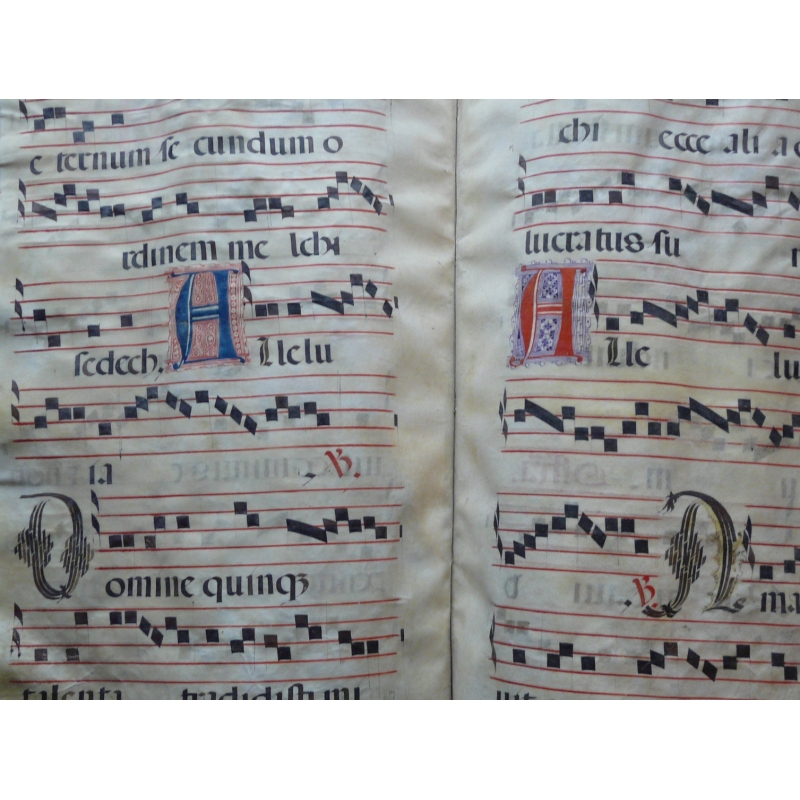 e ternum se cundum o
rdinem me lchi
sedech. A lelu
ia ℟.
Domine quinqꝫ
talenta tradidisti mi
chi ecce ali a
lucratus su
A lle lu
℟.